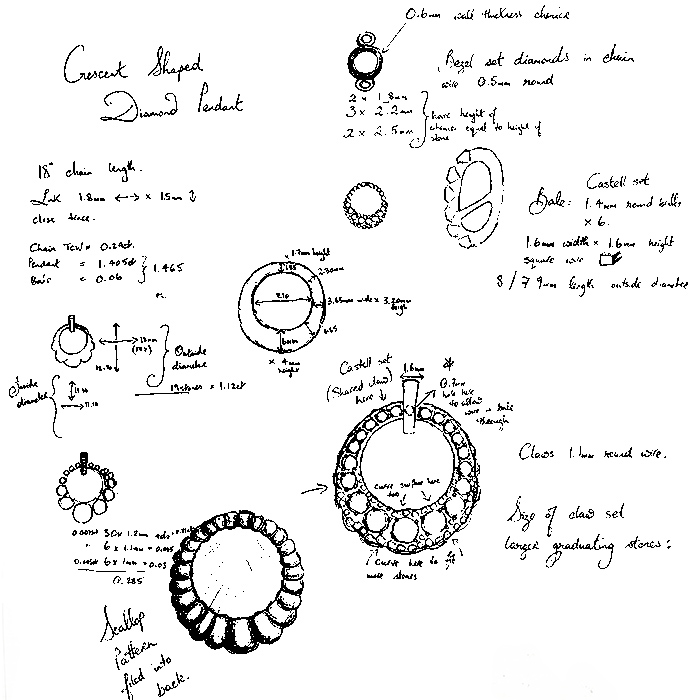 0.6mm wall thickness chenier
Crescent Shaped
Diamond Pendant
Bezel set diamonds in chain
wire 0.5mm round
2 x 1.8mm
3 x 2.2mm
2 x 2.5mm
have height of
chenier equal to height of
stone
18" chain length.
Link 1.8mm ↔ x 1.5mm ↕
close since.
Chain TCW = 0.24ct.
Pendant = 1.405ct
Bale = 0.06
1.465
ct.
Castell set
Bale: 1.4mm round balls
x 6.
1.6mm width x 1.6mm height
square wire
8/7 9mm length outside diameter
1.7mm height
2.90mm
3.65mm wide x 3.20mm
height
x 4mm
height
Outside
diameter
Inside
diameter
11.10
19 stones = 1.12ct
Castell set
(Shared claw)
here
1.6mm
0.7mm
hole here
to allow
wire
through
curve surface here
too
Curve here to fit
more stones
Claws 1.1mm round wire.
Size of claw set
larger graduating stones:
30 x 1.2mm
6 x 1.1mm = 0.05
6 x 1mm = 0.03
0.285
Scallop
Pattern
filed into
back.